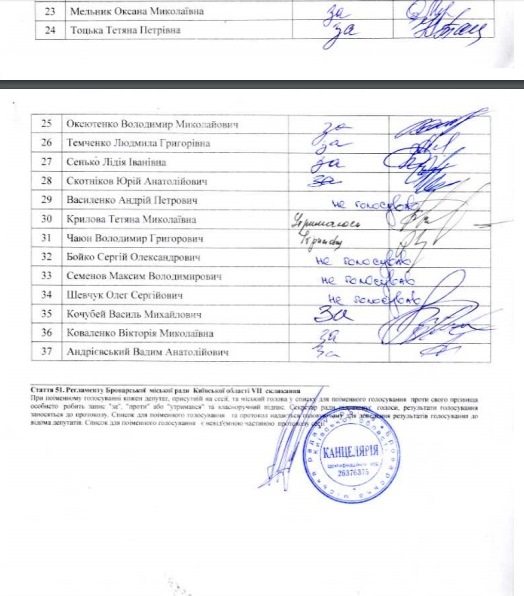 23 Мельник Оксана Миколаївна за
24 Тоцька Тетяна Петрівна за
25 Оксютенко Володимир Миколайович за
26 Темченко Людмила Григорівна за
27 Сенько Лідія Іванівна за
28 Скотніков Юрій Анатолійович за
29 Василенко Андрій Петрович не голосував
30 Крилова Тетяна Миколаївна
31 Чаюн Володимир Григорович
32 Бойко Сергій Олександрович не голосував
33 Семенов Максим Володимирович не голосував
34 Шевчук Олег Сергійович не голосував
35 Кочубей Василь Михайлович За
36 Коваленко Вікторія Миколаївна за
37 Андрієвський Вадим Анатолійович за
Стаття 51. Регламенту Броварської міської ради Київської області VII скликання
При поіменному голосуванні кожен депутат, присутній на сесії, та міський голова у списку для поіменного голосування проти свого прізвища
особисто робить запис "за", "проти" або "утримався" та власноручний підпис. Секретар ради голоси, результати голосування
заносяться до протоколу. Список для поіменного голосування та протокол для доведення результатів голосування до
відома депутатів. Список для поіменного голосування є невід'ємною частиною протоколу сесії
КАНЦЕЛЯРІЯ
26376375